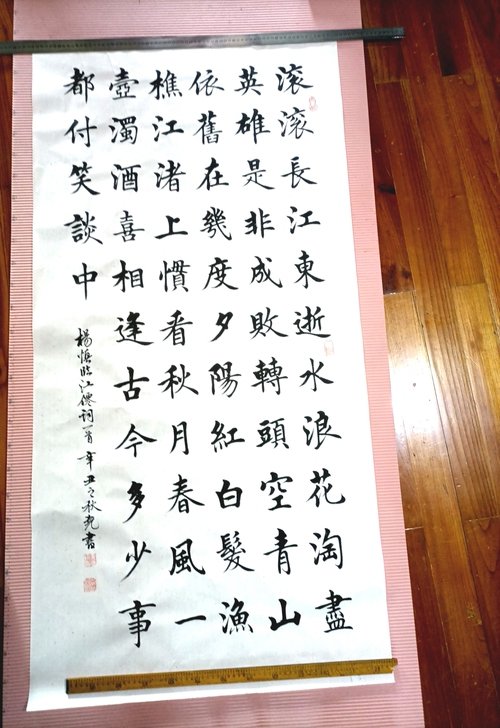 滚滚長江東逝水浪花淘盡
英雄是非成敗轉頭空青山
依舊在幾度夕陽紅白髮漁
樵江渚上慣看秋月春風一
壺濁酒喜相逢古今多少事
都付笑談中
楊慎臨江僊詞一首 辛丑之秋 書